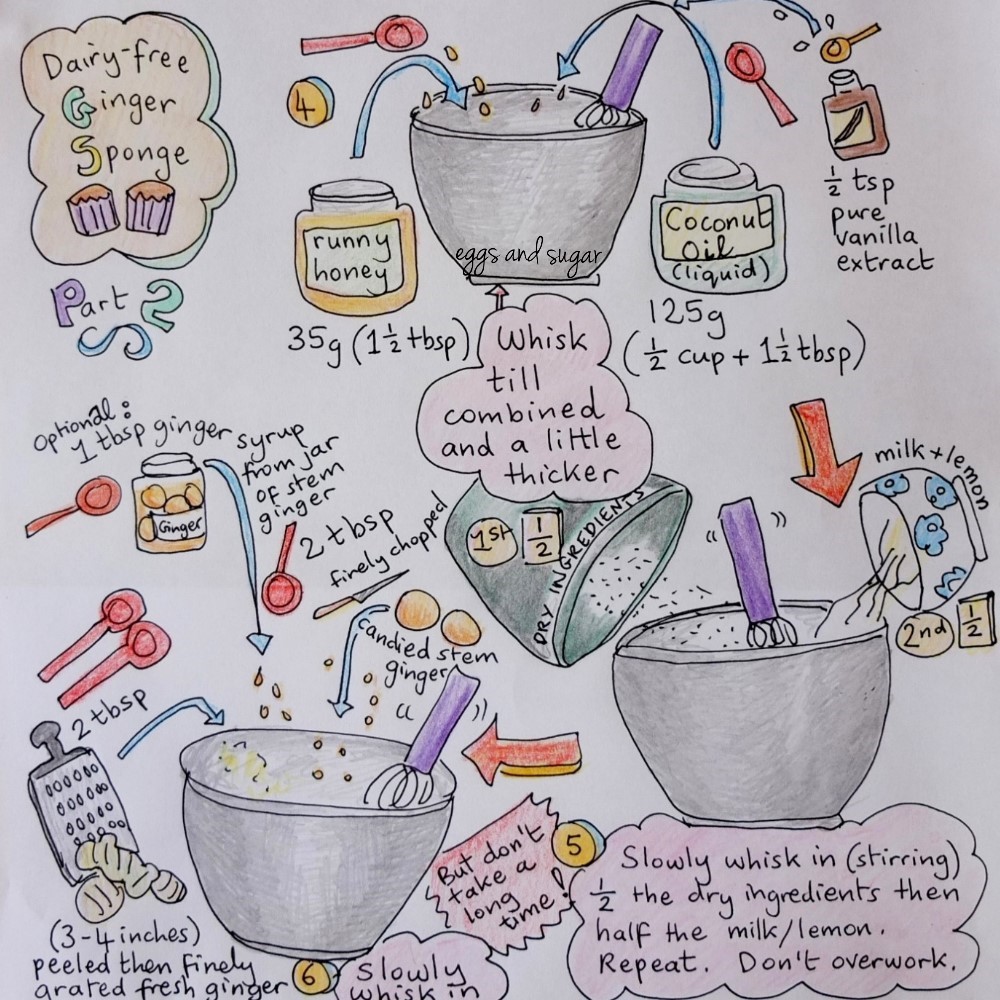 Dairy-free
Ginger
Sponge
Part 2
4
runny
honey
35g (1½ tbsp)
eggs and sugar
Coconut
Oil
(liquid)
125g
(½ cup + 1½ tbsp)
½ tsp
pure
vanilla
extract
Whisk
till
combined
and a little
thicker
optional:
1 tbsp ginger syrup
from jar
of stem
ginger
Ginger
2 tbsp
finely chopped
candied stem
ginger
1st ½
DRY INGREDIENTS
milk + lemon
2nd ½
2 tbsp
(3-4 inches)
peeled then finely
grated fresh ginger
But don't
take a
long
time!
5
Slowly whisk in (stirring)
½ the dry ingredients then
half the milk/lemon.
Repeat. Don't overwork.
6
Slowly
whisk in